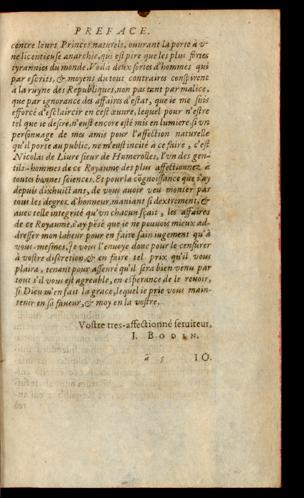 PREFACE.
contre leurs Princes naturels, ouurant la porte à v-
ne licentieuse anarchie, qui est pire que les plus fortes
tyrannies du monde. Voila deux sortes d'hommes qui
par escrits, & moyens du tout contraires conspirent
à la ruyne des Republiques, non pas tant par malice,
que par ignorance des affaires d'estat, que ie me suis
efforcé d'esclaircir en cest œuure, lequel pour n'estre
tel que ie desire, n'eust encore esté mis en lumiere, si vn
personnage de mes amis pour l'affection naturelle
qu'il porte au public, ne m'eust incité à ce faire, c'est
Nicolas de Liure sieur de Humerolles, l'vn des gen-
tils-hommes de ce Royaume des plus affectionnez à
toutes bonnes sciences. Et pour la cõgnoissance que i'ay
depuis dixhuict ans, de vous auoir veu monter par
tous les degrez d'honneur, maniant si dextrement, &
auec telle integrité qu'vn chacun sçait, les affaires
de ce Royaume, i'ay pēsé que ie ne pouuois mieux ad-
dresser mon labeur pour en faire sain iugement qu'à
vous-mesmes. Ie vous l'enuoye donc pour le censurer
à vostre discretion, & en faire tel prix qu'il vous
plaira, tenant pour asseuré qu'il sera bien venu par
tout s'il vous est agreable, en esperance de le reuoir,
si Dieu m'en fait la grace, lequel ie prie vous main-
tenir en sa faueur, & moy en la vostre.
Vostre tres-affectionné seruiteur,
I. BODIN.
ã 5 IO.